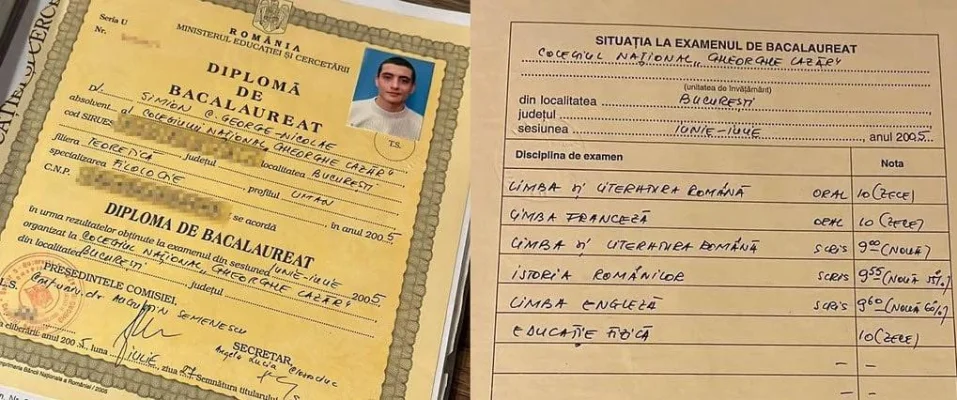 Seria U
Nr.
ROMÂNIA
MINISTERUL EDUCAŢIEI ŞI CERCETĂRII
DIPLOMĂ
DE
BACALAUREAT
SIMION G. GEORGE-NICOLAE
absolvent al COLEGIULUI NAŢIONAL „GHEORGHE LAZĂR”
cod SIRUES localitatea BUCUREŞTI
filiera TEORETICĂ, judeţul
specializarea FILOLOGIE, profilul UMAN
C.N.P. se acordă în anul 2005
DIPLOMA DE BACALAUREAT
în urma rezultatelor obţinute la examenul din sesiunea IUNIE-IULIE 2005
organizat la COLEGIUL NAŢIONAL „GHEORGHE LAZĂR”
din localitatea BUCUREŞTI, judeţul
PREŞEDINTELE COMISIEI,
L.S.
T.S.
SEMENESCU
SECRETAR,
eliberării: anul 2005, luna IULIE, ziua 27 Semnătura titularului
Imprimeria Băncii Naţionale a României / 2005
SITUAŢIA LA EXAMENUL DE BACALAUREAT
COLEGIUL NAŢIONAL „GHEORGHE LAZĂR”
(unitatea de învăţământ)
din localitatea BUCUREŞTI
judeţul
sesiunea IUNIE-IULIE, anul 2005
Disciplina de examen Nota
LIMBA ŞI LITERATURA ROMÂNĂ ORAL 10 (ZECE)
LIMBA FRANCEZĂ ORAL 10 (ZECE)
LIMBA ŞI LITERATURA ROMÂNĂ SCRIS 9,00 (NOUĂ)
ISTORIA ROMÂNILOR SCRIS 9,55 (NOUĂ 55%)
LIMBA ENGLEZĂ SCRIS 9,60 (NOUĂ 60%)
EDUCAŢIE FIZICĂ 10 (ZECE)
– –
– –